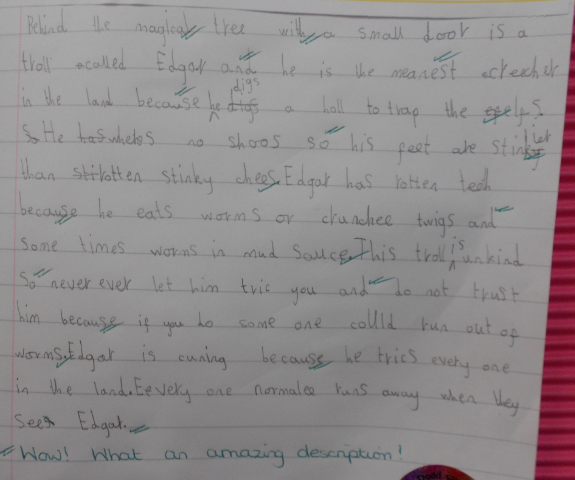 Behind the magical tree with a small door is a
troll acalled Edgar and he is the meanest creecher
in the land because he digs a holl to trap the
He wheres no shoos so his feet are stinkyier
than rotten stinky chees. Edgar has rotten teeh
because he eats worms or crunchee twigs and
some times worms in mud sauce. This troll is unkind
so never ever let him tric you and do not trust
him because if you do some one colld run out of
worms. Edgar is cuning because he trics every one
in the land. Eevery one normalee runs away when they
see Edgar.
Wow! What an amazing description!